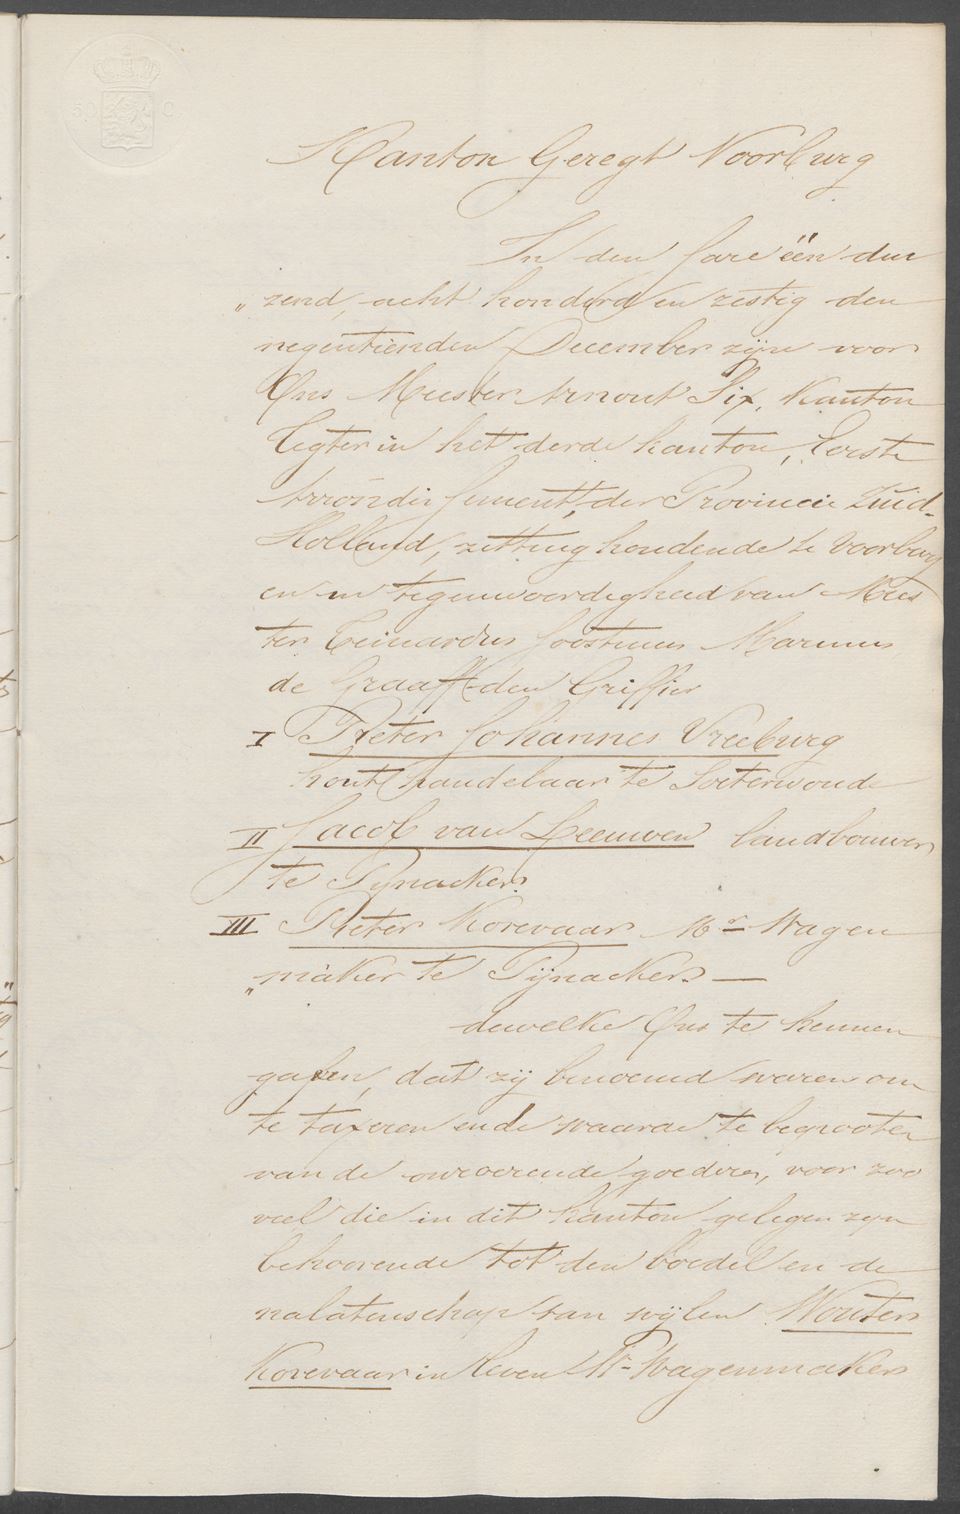 50 C.
Kanton Geregt Voorburg
In den Jare één dui
„zend, acht honderd en zestig den
negentienden December zijn voor
Ons Meester Arnout Six, Kanton
Regter in het derde kanton, Eerste
Arrondissement, der Provincie Zuid-
Holland, zitting houdende te Voorburg
en in tegenwoordigheid van Mees
ter Reinardus Joostinus Marinus
de Graaff den Griffier
I Pieter Johannes Vreeburg
houthandelaar te Soeterwoude
II Jacob van Leeuwen landbouwer
te Pijnacker.
III Pieter Korevaar Mr Wagen
„maker te Pijnacker. —
dewelke Ons te kennen
gaven, dat zij benoemd waren om
te taxeren en de waarde te begrooten
van de onroerende goederen, voor zoo
veel die in dit kanton gelegen zijn
behoorende tot den boedel en de
nalatenschap van wijlen Wouter
Korevaar in leven Mr Wagenmaker